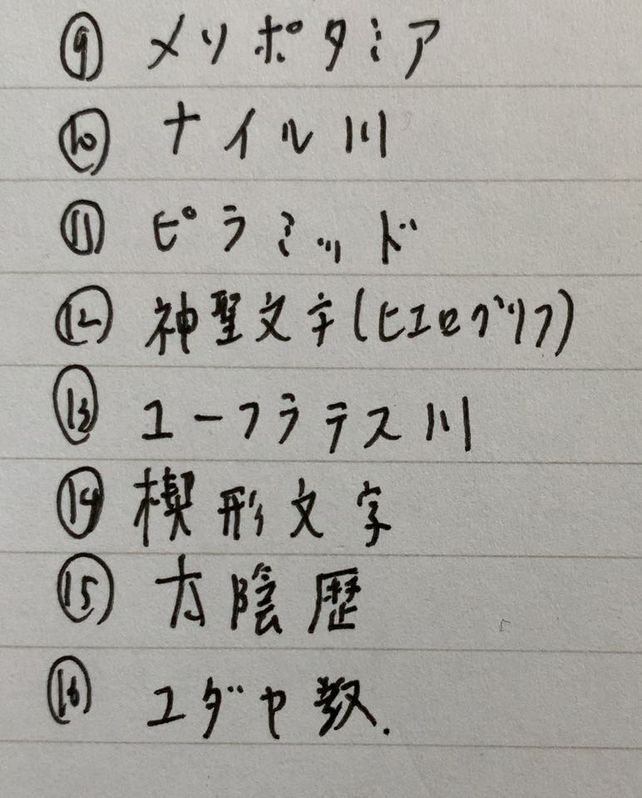 ⑨ メソポタミア
⑩ ナイル川
⑪ ピラミッド
⑫ 神聖文字(ヒエログリフ)
⑬ ユーフラテス川
⑭ 楔形文字
⑮ 太陰歴
⑯ ユダヤ教.